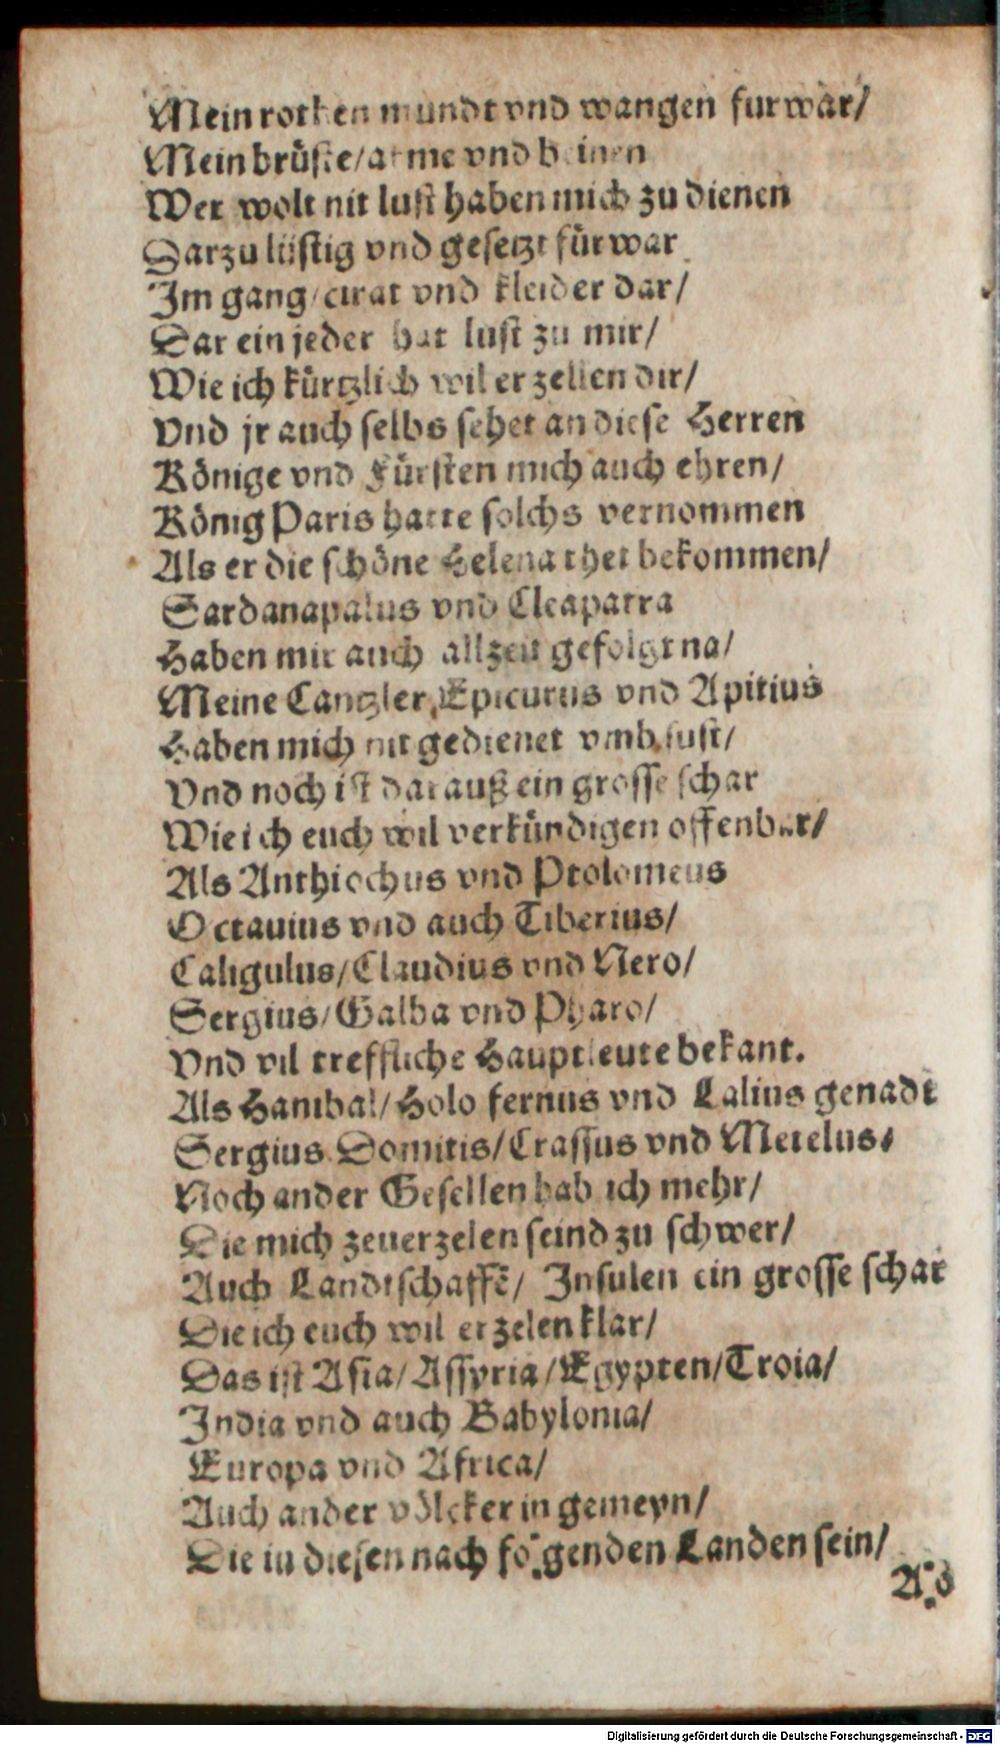 Mein rothen mundt vnd wangen furwar/
Mein brüste/arme vnd beinen
Wer wolt nit lust haben mich zu dienen
Darzu lüstig vnd gesetzt fürwar
Im gang/cirat vnd kleider dar/
Dar ein jeder hat lust zu mir/
Wie ich kürtzlich wil erzellen dir/
Vnd jr auch selbs sehet an diese Herren
Könige vnd Fürsten mich auch ehren/
König Paris hatte solchs vernommen
Als er die schöne Helena thet bekommen/
Sardanapalus vnd Cleapatra
Haben mir auch allzeit gefolgt na/
Meine Cantzler, Epicurus vnd Apitius
Haben mich nit gedienet vmb sust/
Vnd noch ist darauß ein grosse schar
Wie ich euch wil verkündigen offenbar/
Als Anthiochus vnd Ptolomeus
Octauius vnd auch Tiberius/
Caligulus/Claudius vnd Nero/
Sergius/Galba vnd Pharo/
Vnd vil treffliche Hauptleute bekant.
Als Hanibal/Holo fernus vnd Lalius genadt
Sergius Domitis/Crassus vnd Metelus/
Noch ander Gesellen hab ich mehr/
Die mich zeuerzelen seind zu schwer/
Auch Landtschaffē/ Insulen ein grosse schar
Die ich euch wil erzelen klar/
Das ist Asia/Assyria/Egypten/Troia/
India vnd auch Babylonia/
Europa vnd Africa/
Auch ander völcker in gemeyn/
Die in diesen nach folgenden Landen sein/
Digitalisierung gefördert durch die Deutsche Forschungsgemeinschaft - DFG